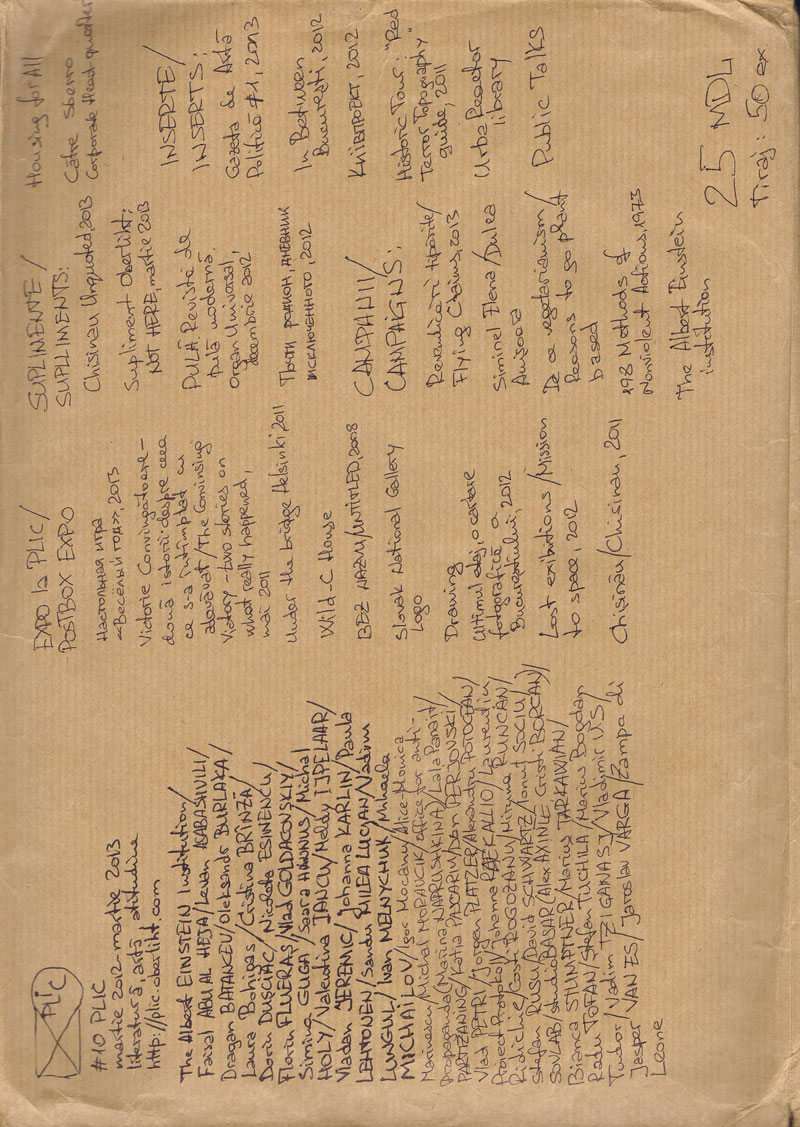 PLIC
#10 PLIC
martie 2012-martie 2013
literatură, artă, atitudine
http://plic.oberliht.com
The Albert EINSTEIN Institution/
Faisal ABU AL HEJA/Levan ASABASHVILI/
Dragan BATANCEV/Oleksandr BURLAKA/
Laura Bohigas/Cristina BRÎNZĂ/
Dorin DUȘCIAC/Nicoleta ESINENCU/
Florin FLUERAȘ/Vlad GOLDAGOVSKIY/
Siming GUGA/Saara HANNUS/Michal
HOLY/Valentina IANCU/Meldy IJPELAAR/
Vladan JEREMIC/Johanna KARLIN/Paula
LEHTONEN/Sandu MILEA LUCIAN/Vadim
LUNGUL/Ivan MELNYCHUK/Mihaela
MICHAILOV/Igor Mocanu/Alice-Monica
Marinescu/Michal MORAUCIK/Office for anti-
propaganda/Marina NAPRUSHKINA/Lala Panait/
PARTIZANING/Katia PASCARIU/Dan PERJOVSKI/
Vlad PETRI/Jorgen PLATZER/Alexandru POTOCEAN/
Project Protokoll/Johanna RAEKALLIO/Laurentiu
Ridichie/Costi ROGOZANU/Mitruna RUNCAN/
Stefan RUSU/David SCHWARTZ/Ionut SOCIU/
SOVLAB/studioBASAR/Alex AXINTE Cristi BORCAN/
Bianca STUMPTNER/Marius TARKAWIAN/
Radu TOFAN/Stefan TUCHILA/Marius Bogdan
Tudor/Vadim TZIGANASH/Vladimir US/
Jasper VAN ES/Jaroslav VARGA/Zampa di
Leone
EXPO la PLIC/
POSTBOX EXPO
Настольная игра
«Весёлый год», 2013
Victorie Convingătoare-
două istorii despre ceea
ce s-a întîmplat cu
adevărat/The Convinsing
Victory-two stories on
what really happened,
mai 2011
Under the bridge Helsinki 2011
Wild-C House
BEZ NAZVU/UNTITLED, 2008
Slovak National Gallery
Logo
Drawing
Ultimul etaj, o cartare
fotografică a
Bucureștiului, 2012
Lost exibitions/Mission
to space, 2012
Chișinău/Chisinau, 2011
SUPLINENTE/
SUPLIMENTS:
Chisinau Unquoted, 2013
Supliment Oberliht:
NOT HERE, martie 2013
PULĂ Revistă de
pulă modernă.
Organ Universal,
decembrie 2012
Почти родион, дневник
исключенного, 2012
CAMPANII/
CAMPAIGNS:
Revendicări tipărite/
Flying Claims, 2013
Siminel Elena/Dulea
Anișoara
De ce vegetarianism/
Reasons to go plant
based
198 Methods of
Nonviolent Actions, 1973
The Albert Einstein
institution
Housing for All
Către Sberro
Corporate Head quarter
INSERTE/
INSERTS:
Gazeta de Artă
Politică #1, 2013
In Between
București, 2012
КиївПРОЕКТ, 2012
Historic Tour: "Red
Terror Topography"
guide, 2011
Urban Reactor
library
Public Talks
25 MDL
Tiraj: 50 ex